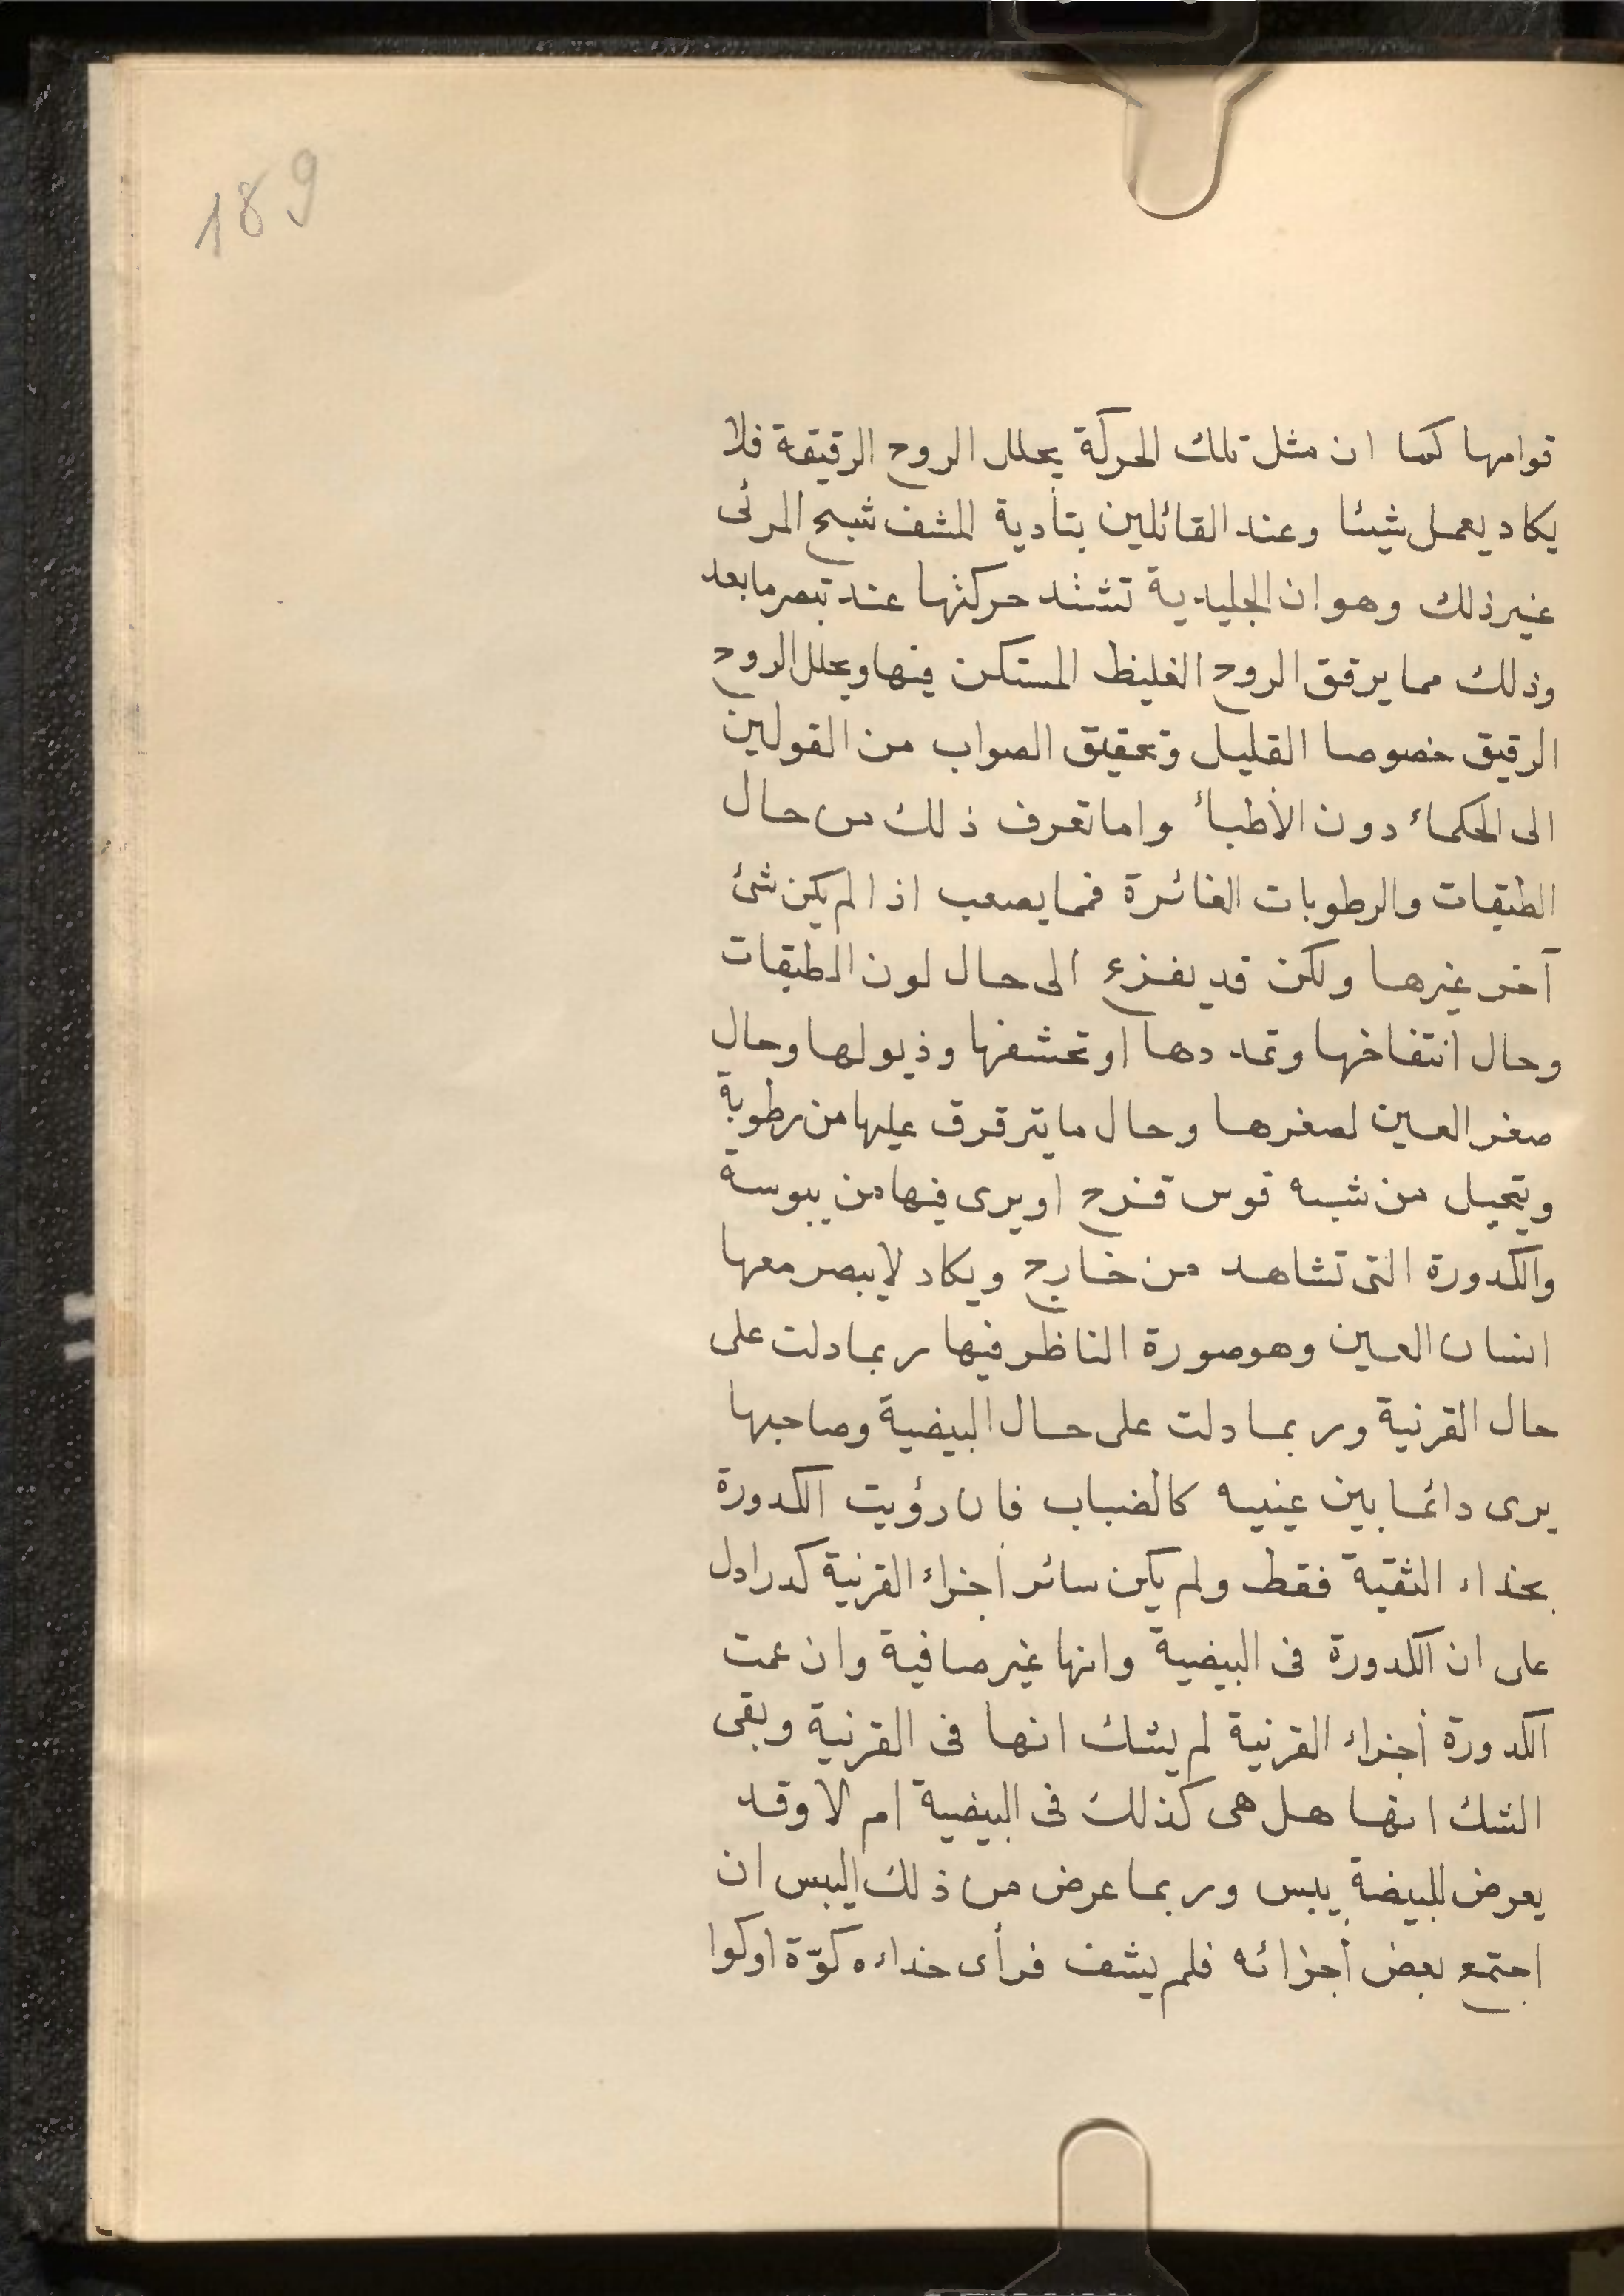 189
قوامها كما ان مثل تلك الحركة يحلل الروح الرقيقة فلا
يكاد يعمل شيئا وعند القائلين بتأدية المشف شبح المرئى
غير ذلك وهو ان الجليدية تشتد حركتها عند تبصر ما بعد
وذلك مما يرقق الروح الغليظ المستكن فيها ويحلل الروح
الرقيق خصوصا القليل وتحقيق الصواب من القولين
الى الحكماء دون الأطباء واما تعرف ذلك من حال
الطبقات والرطوبات الغائرة فمما يصعب اذا لم يكن شئ
آخر غيرها ولكن قد يفزع الى حال لون الطبقات
وحال انتفاخها وتمددها او تحشفها وذبولها وحال
صغر العين لصغرها وحال ما يترقرق عليها من رطوبة
ويتخيل من شبه قوس قزح او يرى فيها من يبوسة
والكدورة التى تشاهد من خارج ويكاد لا يبصر معها
انسان العين وهو صورة الناظر فيها ربما دلت على
حال القرنية وربما دلت على حال البيضية وصاحبها
يرى دائما بين عينيه كالضباب فان رؤيت الكدورة
بحذاء الثقبة فقط ولم يكن سائر أجزاء القرنية كدرا دل
على ان الكدورة فى البيضية وانها غير صافية وان عمت
الكدورة أجزاء القرنية لم يشك انها فى القرنية وبقى
الشك انها هل هى كذلك فى البيضية ام لا وقد
يعرض للبيضة يبس وربما عرض من ذلك اليبس ان
اجتمع بعض أجزائه فلم يشف فرأى حذاءه كوّة او كوا